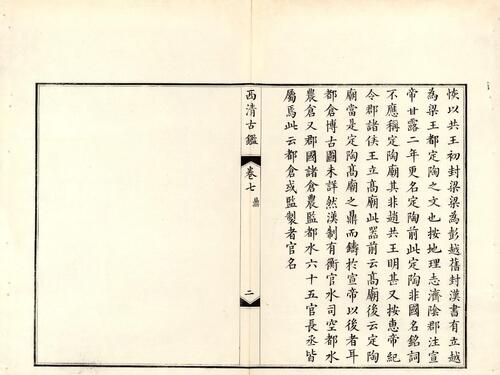 恢以共王初封梁梁為彭越舊封漢書有立越
為梁王都定陶之文也按地理志濟陰郡注宣
帝甘露二年更名定陶前此定陶非國名銘詞
不應稱定陶廟其非趙共王明甚又按惠帝紀
令郡諸侯王立高廟此器前云高廟後云定陶
廟當是定陶高廟之鼎而鑄於宣帝以後者耳
都倉博古圖未詳然漢制有衡官水司空都水
農倉又郡國諸倉農監都水六十五官長丞皆
屬焉此云都倉或監製者官名
西清古鑑
卷七
鼎
二